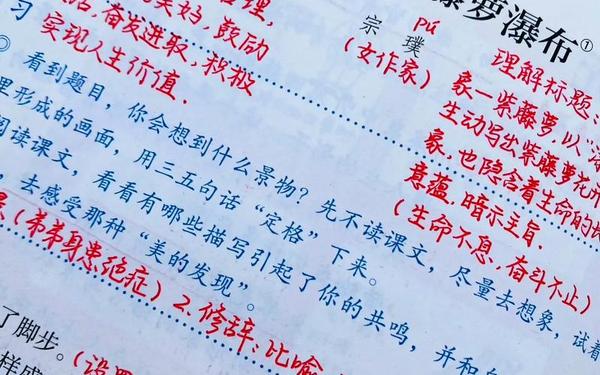 藤萝瀑布①
pú
宗璞
(女作家)
理解标题:
象—紫藤萝,以"
生动写出紫藤萝花开
象,也隐含着生命的
意蕴,暗示主旨.
(生命不息,奋斗不止)
美妙,鼓励
奋发进取,积极
实现人生价值.
习
看到题目,你会想到什么景物?先不读课文,尽量去想象,试着
里形成的画面,用三五句话"定格"下来。
阅读课文,看看有哪些描写引起了你的共鸣,并和
,去感受那种"美的发现"。
(弟弟身患绝症)2.修辞:比喻
了脚步。(设
样